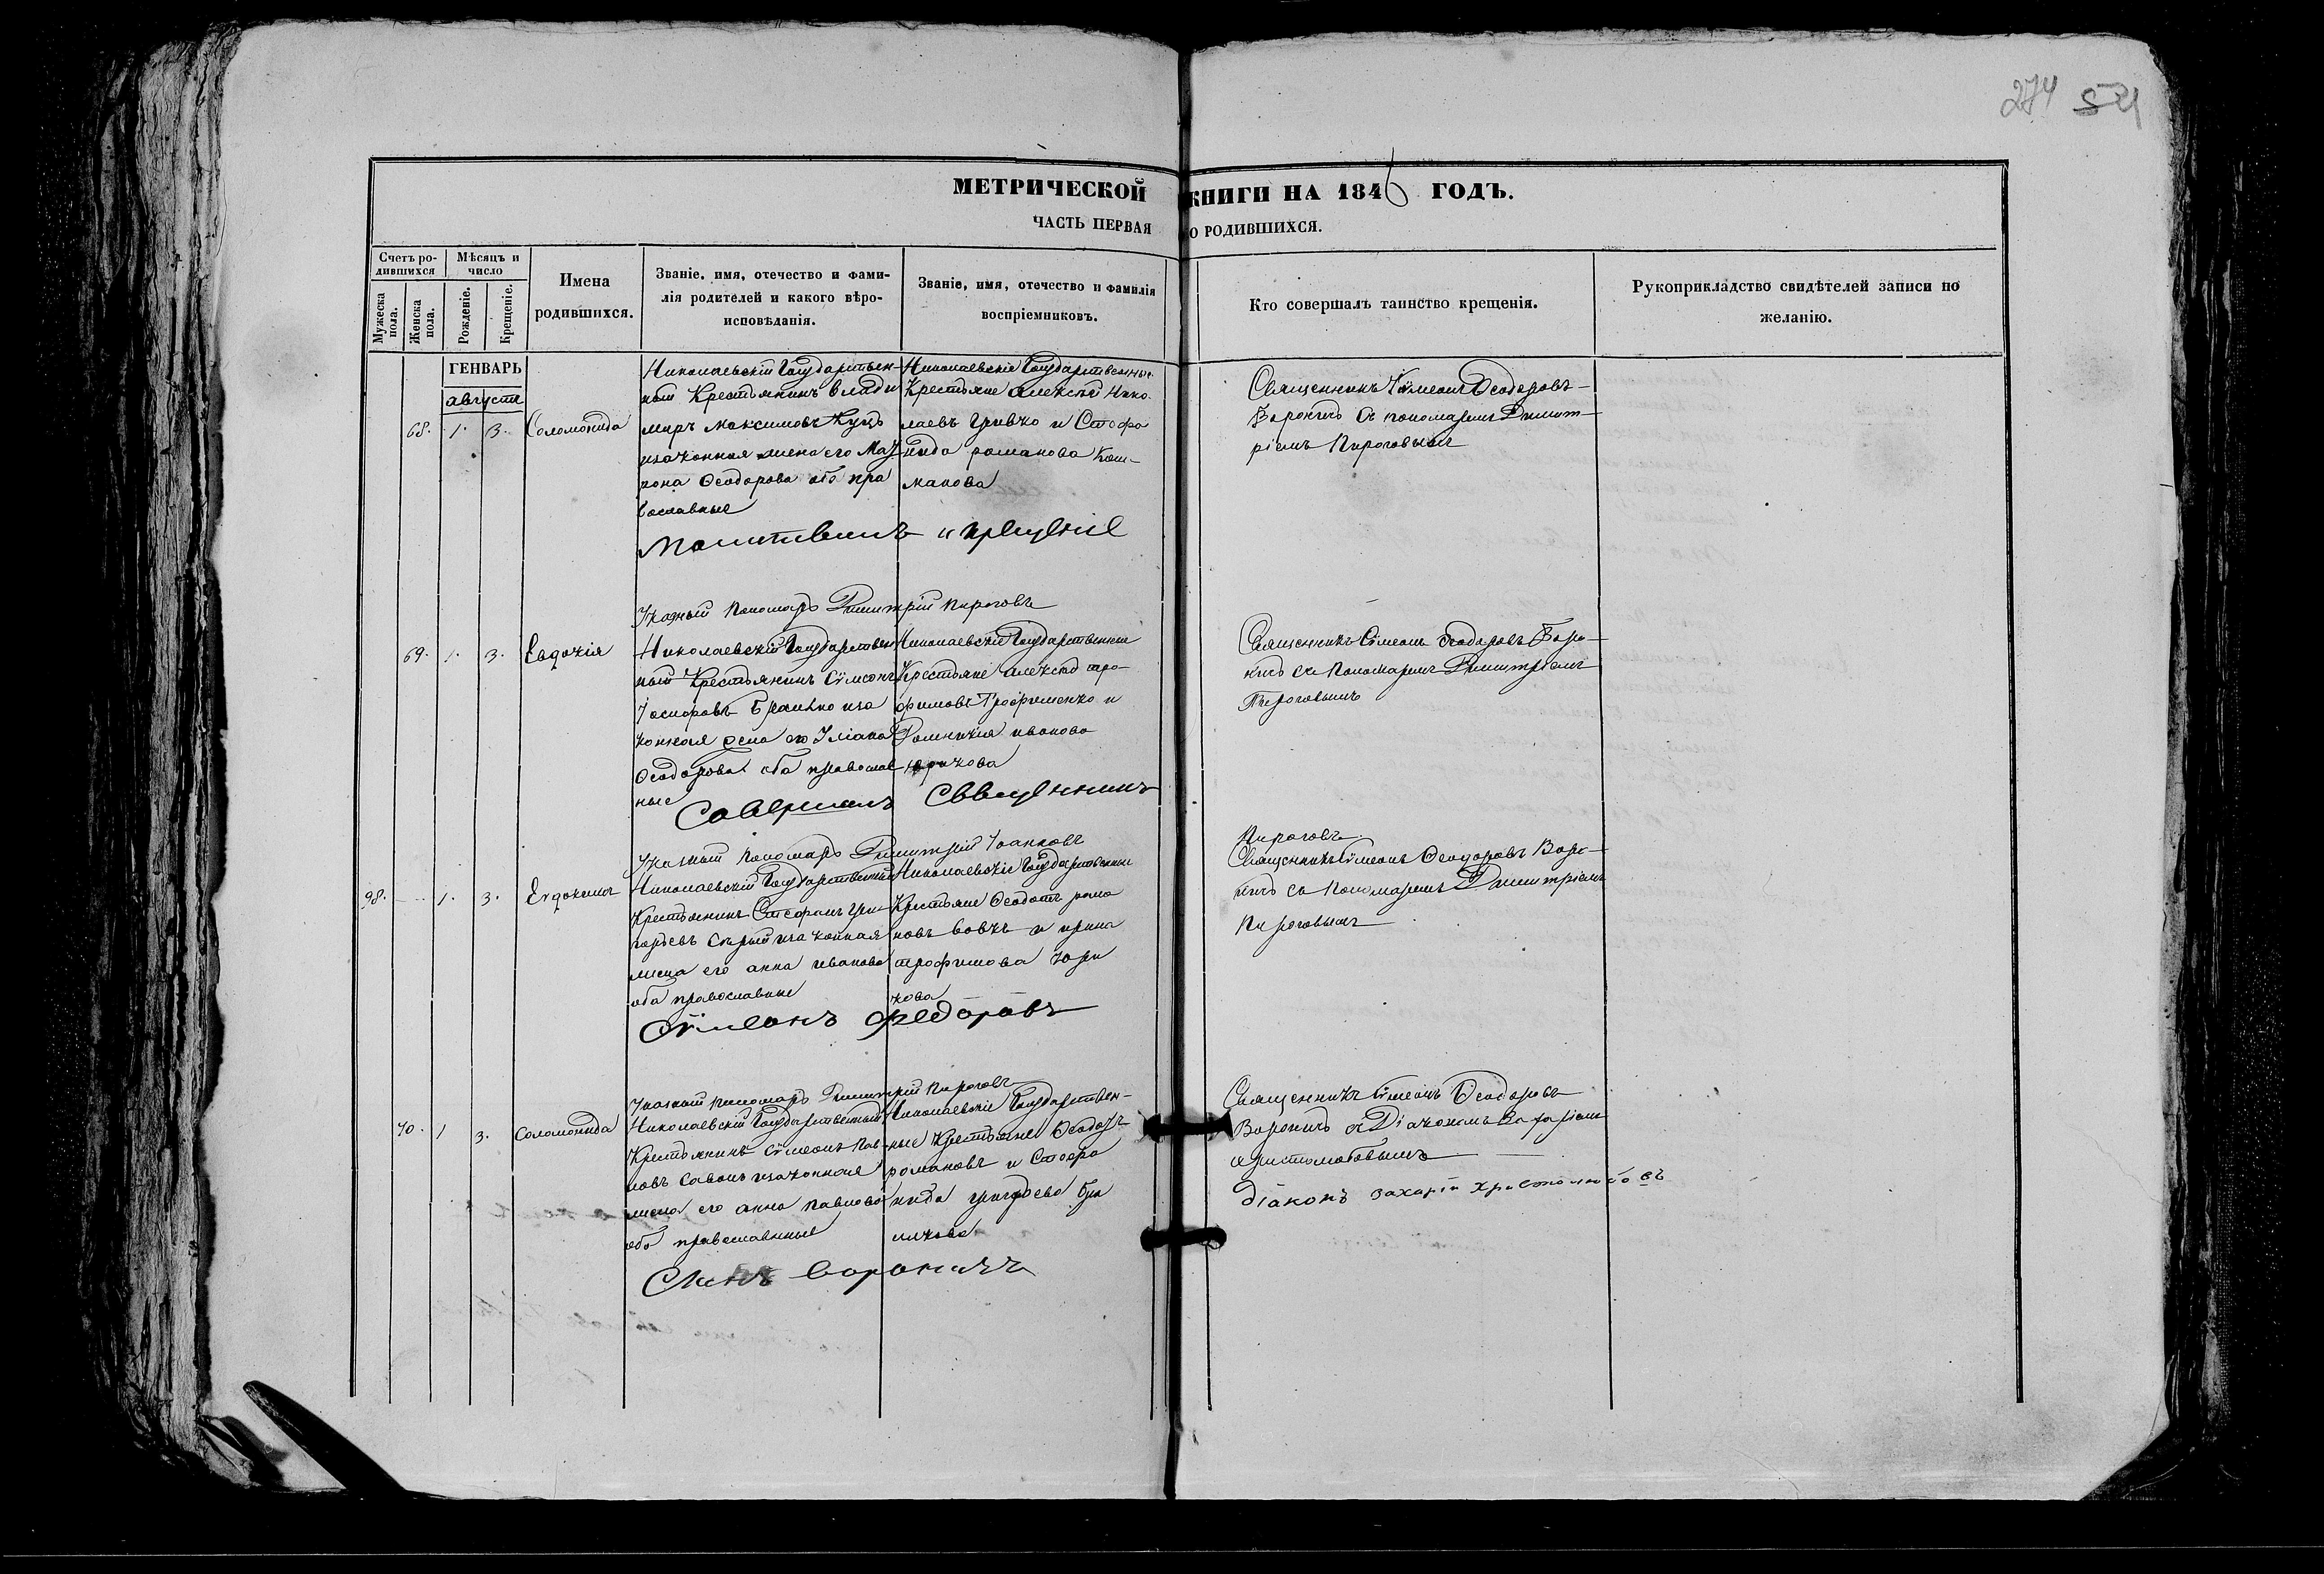 274 54
МЕТРИЧЕСКОЙ КНИГИ НА 1846 ГОДЪ.
ЧАСТЬ ПЕРВАЯ О РОДИВШИХСЯ.
Счетъ ро-
дившихся
Мужеска пола.
Женска пола.
Мѣсяцъ и
число
Рожденіе.
Крещеніе.
Имена
родившихся.
Званіе, имя, отечество и фами-
лія родителей и какого вѣро-
исповѣданія.
Званіе, имя, отечество и фамилія
воспріемниковъ.
Кто совершалъ таинство крещенія.
Рукоприкладство свидѣтелей записи по
желанію.
ГЕНВАРЬ
августа
68. 1. 3. Соломонида
Николаевскій Государствен-
ный Крестьянинъ Влади
миръ Максимовъ Куцъ
изаконная жена его Мат
рона Ѳеодорова оба пра
вославные
Николаевскіе Государственные
Крестьяне Алексѣй Нико
лаевъ Гривко и Стефа
нида романова Кош-
макова
Священникъ Сѵмеонъ Ѳеодоровъ
Вороничъ съ пономаремъ Димит-
ріемъ Пироговымъ
Молитвилъ и крещеніе
Указный Пономарь Димитрій Пироговъ
69. 1. 3. Евдокія
Николаевскій Государствен
ный Крестьянинъ Сѵмеонъ
иза
конная жена его Уліана
Ѳеодорова оба православ
ные
Николаевскіе Государственные
Крестьяне Алексѣй тро-
фимовъ Трофименко и
Домникія иванова
юрикова
Священникъ Сѵмеонъ Ѳеодоровъ Воро-
ничъ съ Пономаремъ Димитріемъ
Пироговымъ
Совершалъ Священникъ
Указный Пономарь Димитрій Іоанновъ
Пироговъ
98. 1. 3. Евдокимъ
Николаевскій Государственный
Крестьянинъ Стефанъ Гри
горьевъ Сирый изаконная
жена его анна иванова
оба православные
Николаевскіе Государственные
Крестьяне Ѳеодотъ рома
новъ вовкъ и ирина
трофимова Юри
кова
Священникъ Сѵмеонъ Ѳеодоровъ Воро-
ничъ съ Пономаремъ Димитріемъ
Пироговымъ
Сѵмеонъ Федоровъ
Указный пономарь Димитрій Пироговъ
70. 1 3. Соломонида
Николаевскій Государственный
Крестьянинъ Сѵмеонъ Пав-
ловъ Савонъ изаконная
жена его анна павлова
оба православные
Николаевскіе Государствен-
ные Крестьяне Ѳеодоръ
романовъ и Стефа
нида григорьева
Священникъ Сѵмеонъ Ѳеодоровъ
Вороничъ съ Діакономъ Захаріемъ
Христолюбовымъ
Діаконъ Захарій Христолюбовъ
Сынъ Вороничъ